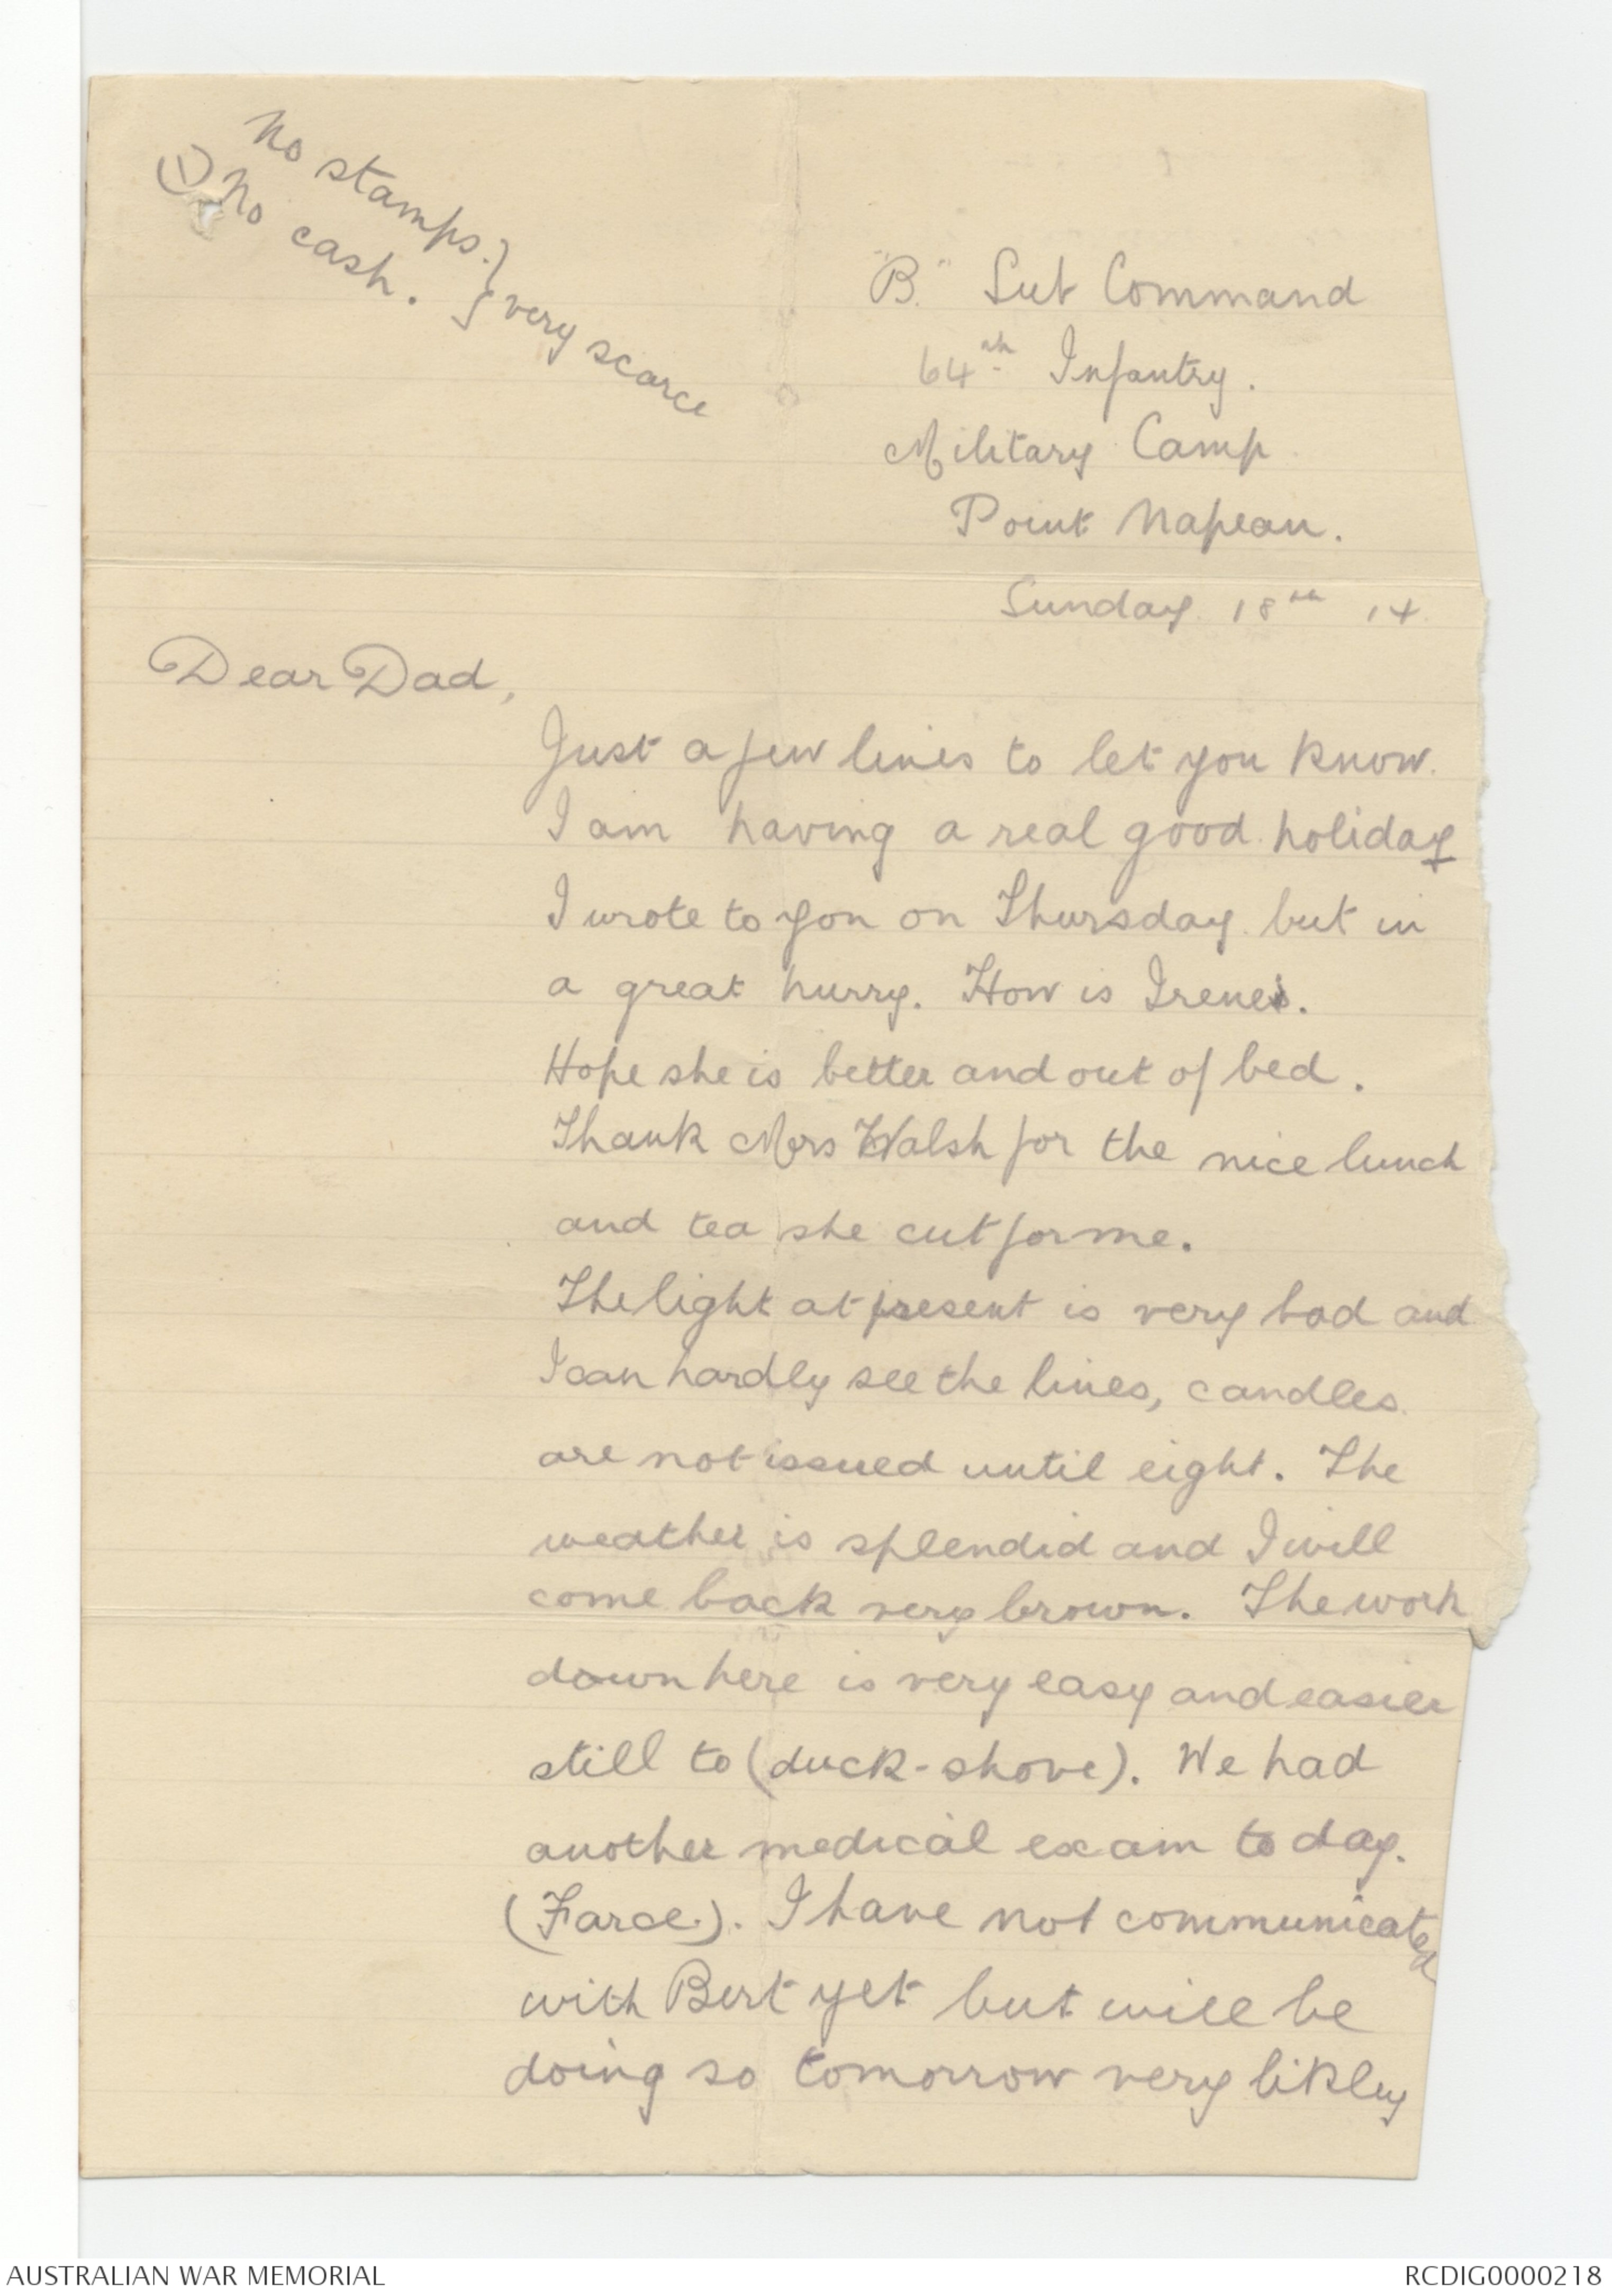 No stamps. }
(1) No cash. } very scarce
"B." Sub Command
64th Infantry.
Military Camp
Point Napean.
Sunday 18th 14
Dear Dad,
Just a few lines to let you know.
I am having a real good holiday
I wrote to you on Thursday but in
a great hurry. How is Irene.
Hope she is better and out of bed.
Thank Mrs Walsh for the nice lunch
and tea she cut for me.
The light at present is very bad and
I can hardly see the lines, candles
are not issued until eight. The
weather is splendid and I will
come back very brown. The work
down here is very easy and easier
still to (duck-shove). We had
another medical exam to day.
(Farce.). I have not communicated
with Bert yet but will be
doing so tomorrow very likley
AUSTRALIAN WAR MEMORIAL
RCDIG0000218